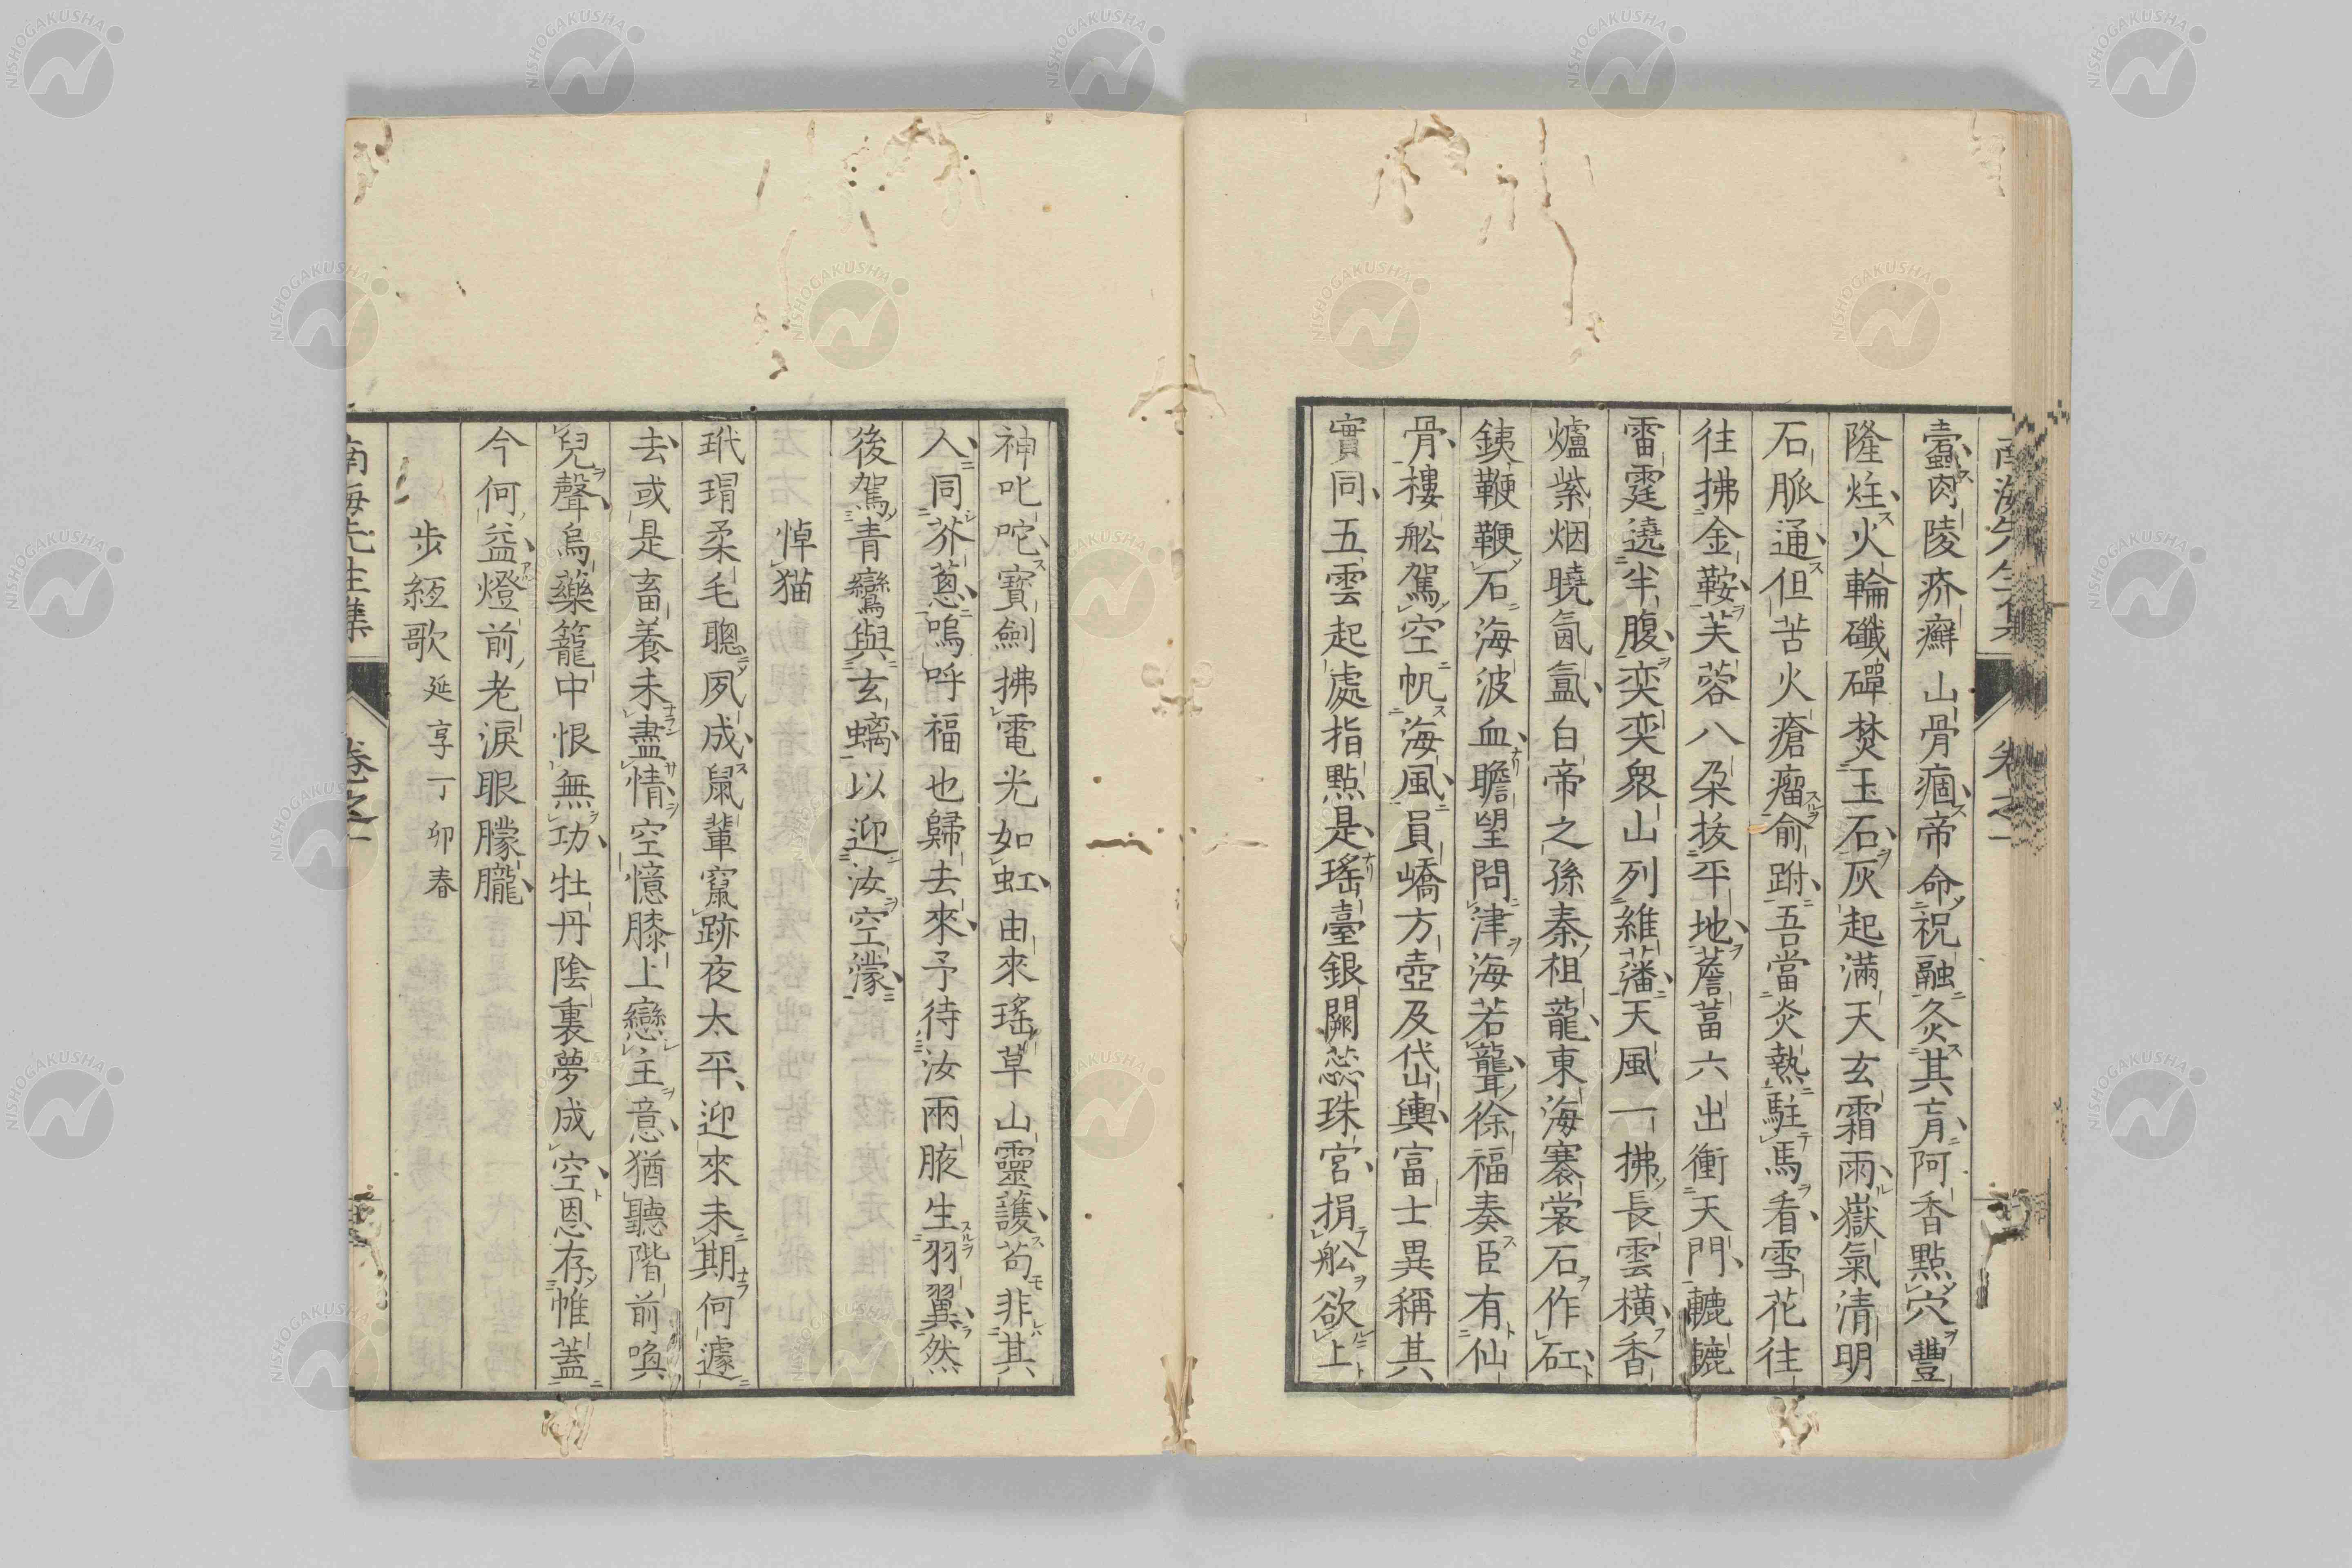 南海先生集
卷之一
蠧肉陵疥癬山骨痼帝命祝融灸其肓阿香點穴豐
隆炷火輪礮磾焚玉石灰起滿天玄霜雨嶽氣清明
石脈通但苦火瘡瘤俞跗吾當炎熱駐馬看雪花往
往拂金鞍芙蓉八朶拔平地薝蔔六出衝天門轆轆
雷霆遶半腹奕奕衆山列維藩天風一拂長雲橫香
爐紫烟曉氤氳白帝之孫秦祖龍東海褰裳石作矼
鐵鞭鞭石海波血瞻望問津海若聾徐福奏臣有仙
骨樓舩駕空帆海風員嶠方壺及岱輿富士異稱其
實同五雲起處指點是瑤臺銀闕蕊珠宮捐舩欲上
神叱咤寶劍拂電光如虹由來瑤草山靈護苟非其
人同芥蔥嗚呼福也歸去來予待汝兩腋生羽翼然
後駕青鸞與玄螭以迎汝空濛
悼猫
玳瑁柔毛聰夙成鼠輩竄跡夜太平迎來未期何遽
去或是畜養未盡情空憶膝上戀主意猶聽階前喚
兒聲烏藥籠中恨無功牡丹陰裏夢成空恩存帷蓋
今何益燈前老淚眼朦朧
步經歌 延享丁卯春
南海先生集
卷之一
NISHOGAKUSHA